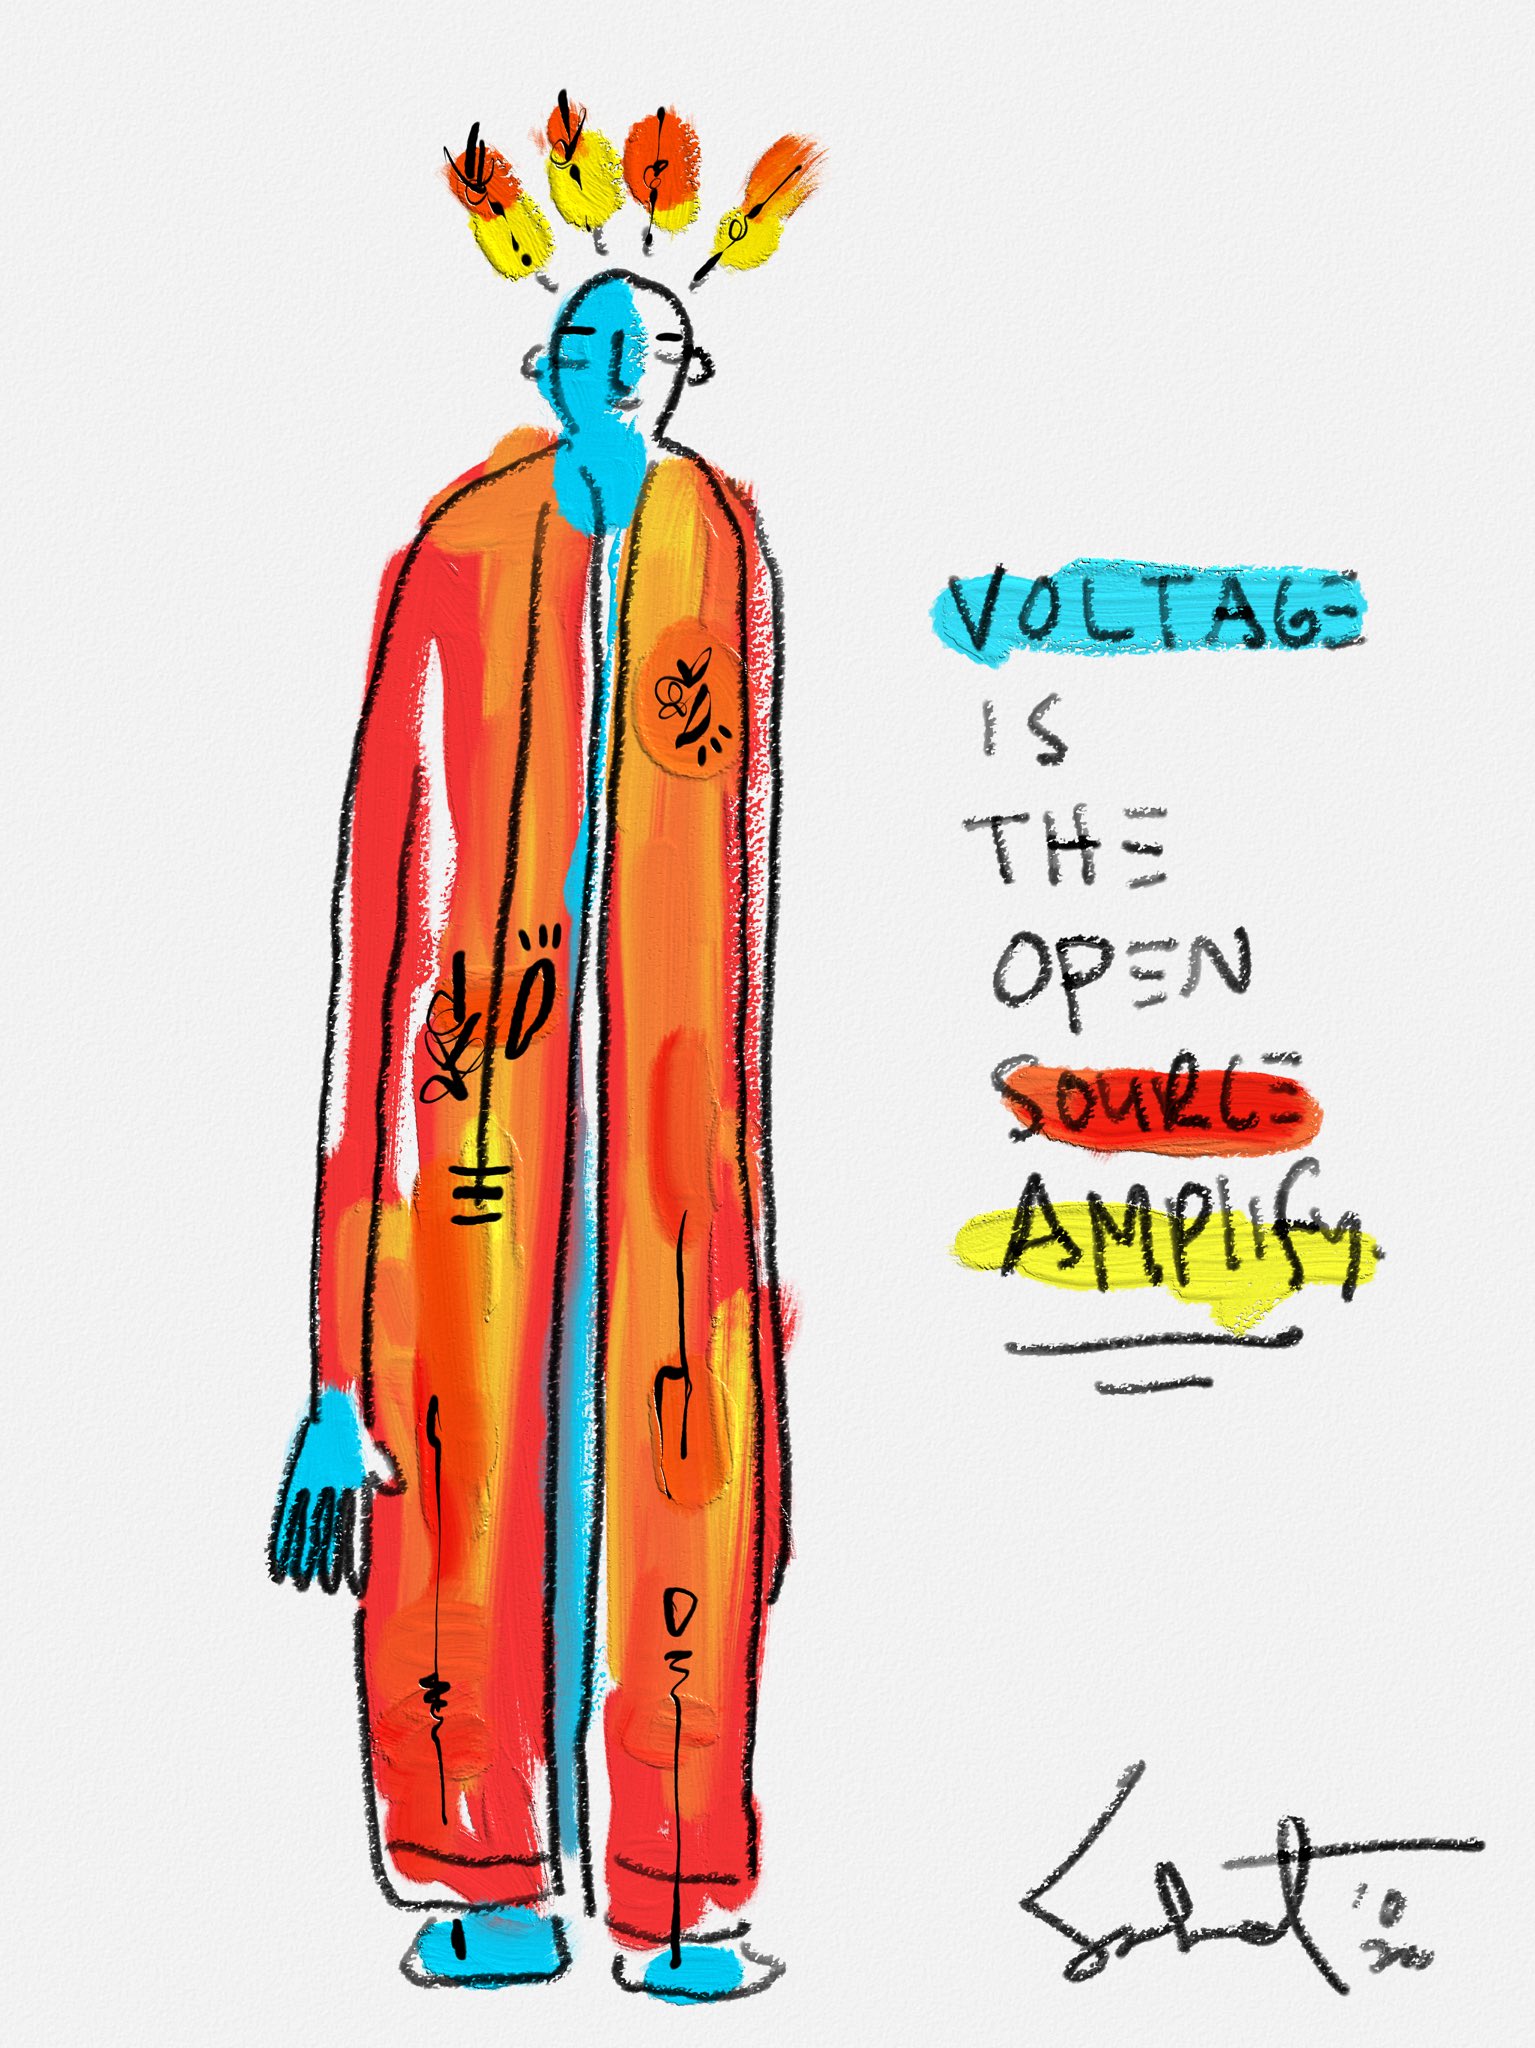 VOLTAGE
IS
THE
OPEN
SOURCE
AMPLIFY.